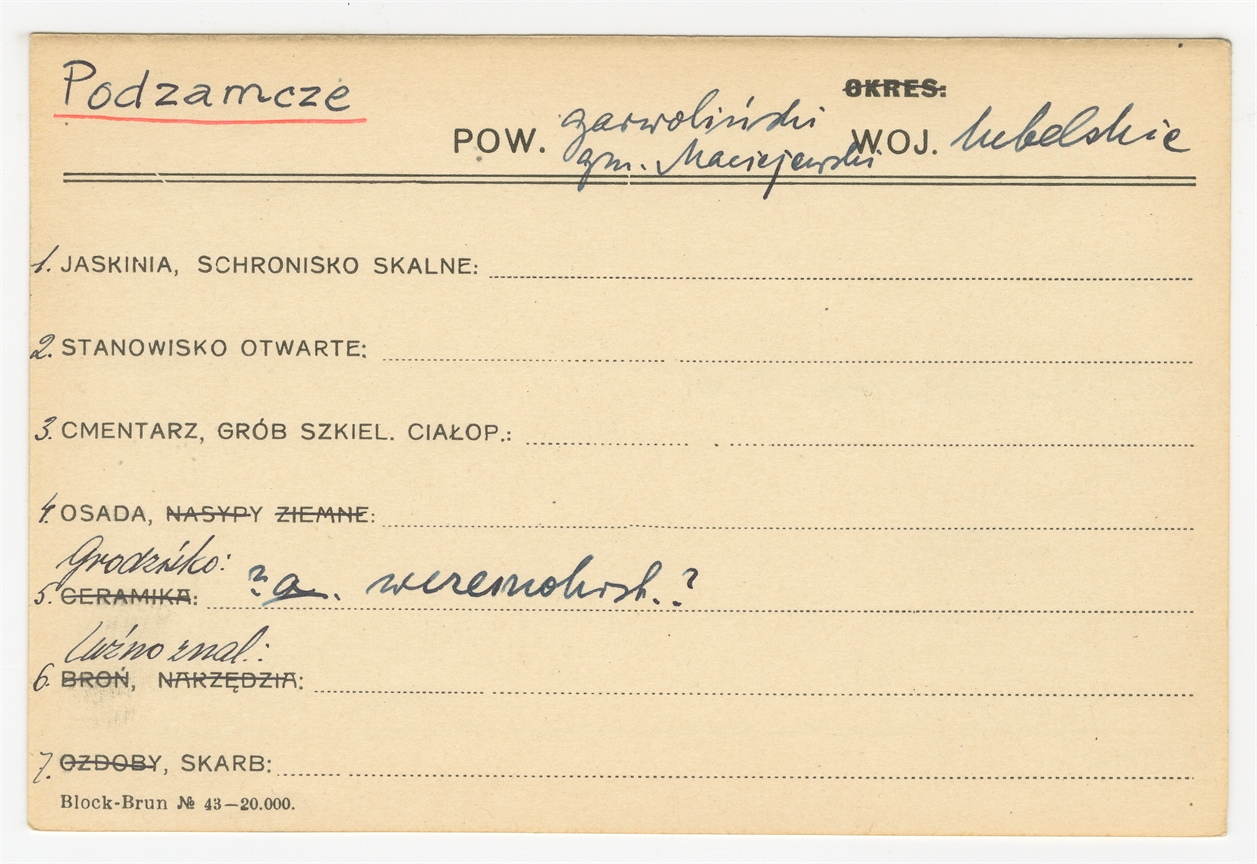 Podzamcze
OKRES:
POW. garwoliński WOJ. lubelskie
gm. Maciejewski
1. JASKINIA, SCHRONISKO SKALNE:
2. STANOWISKO OTWARTE:
3. CMENTARZ, GRÓB SZKIEL. CIAŁOP.:
4. OSADA, NASYPY ZIEMNE:
Grodzisko:
5. CERAMIKA: ? a. wczesnohist. ?
Luźno znal.:
6. BROŃ, NARZĘDZIA:
7. OZDOBY, SKARB:
Block-Brun № 43—20.000.